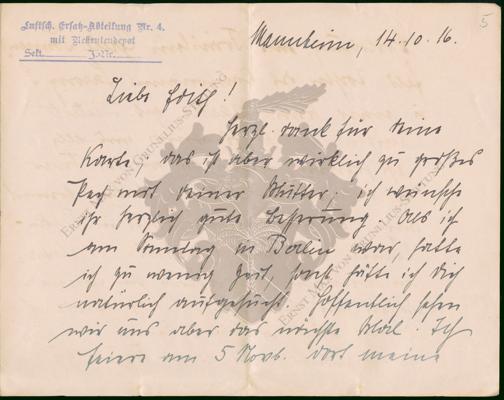 5
Luftsch. Ersatz-Abteilung Nr. 4.
mit Rekrutendepot
Sekt. J.-Nr.
Mannheim, 14.10.16.
Liebe Edith!
Herzl. Dank für Deine
Karte, das ist aber wirklich zu großes
Pech mit Deiner Mutter; ich wünsche
ihr herzlich gute Besserung. Als ich
am Sonntag in Berlin war, hatte
ich zu wenig Zeit, sonst hätte ich Dich
natürlich aufgesucht. Hoffentlich sehen
wir uns aber das nächste Mal. Ich
feiere am 5 Novb. dort meine
ERNST MAX VON GRUNELIUS-STIFTUNG
ERNST MAX VON GRUNELIUS-STIFTUNG